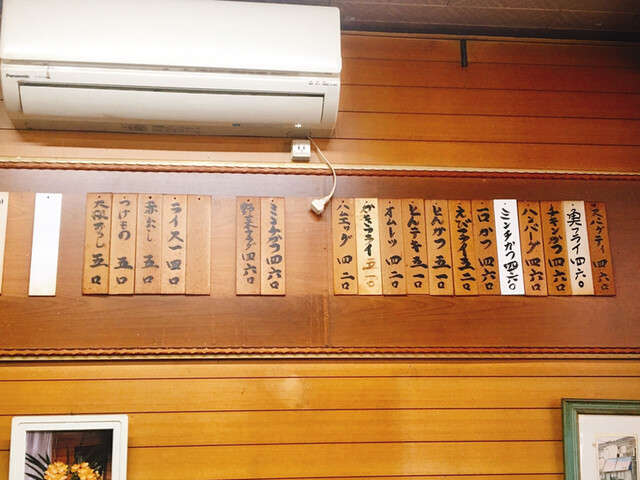 Panasonic
スパゲティ 四六〇
魚フライ 四六〇
チキンカツ 四六〇
ハンバーグ 四六〇
ミンチかつ 四六〇
一口かつ 四六〇
えびフライ 五一〇
とんかつ 五一〇
とんテキ 五一〇
オムレツ 四二〇
かきフライ 五一〇
ハムエッグ 四二〇
ミンチかつ 四六〇
野菜サラダ 四六〇
ライス 一四〇
赤だし 五〇
つけもの 五〇
大根おろし 五〇